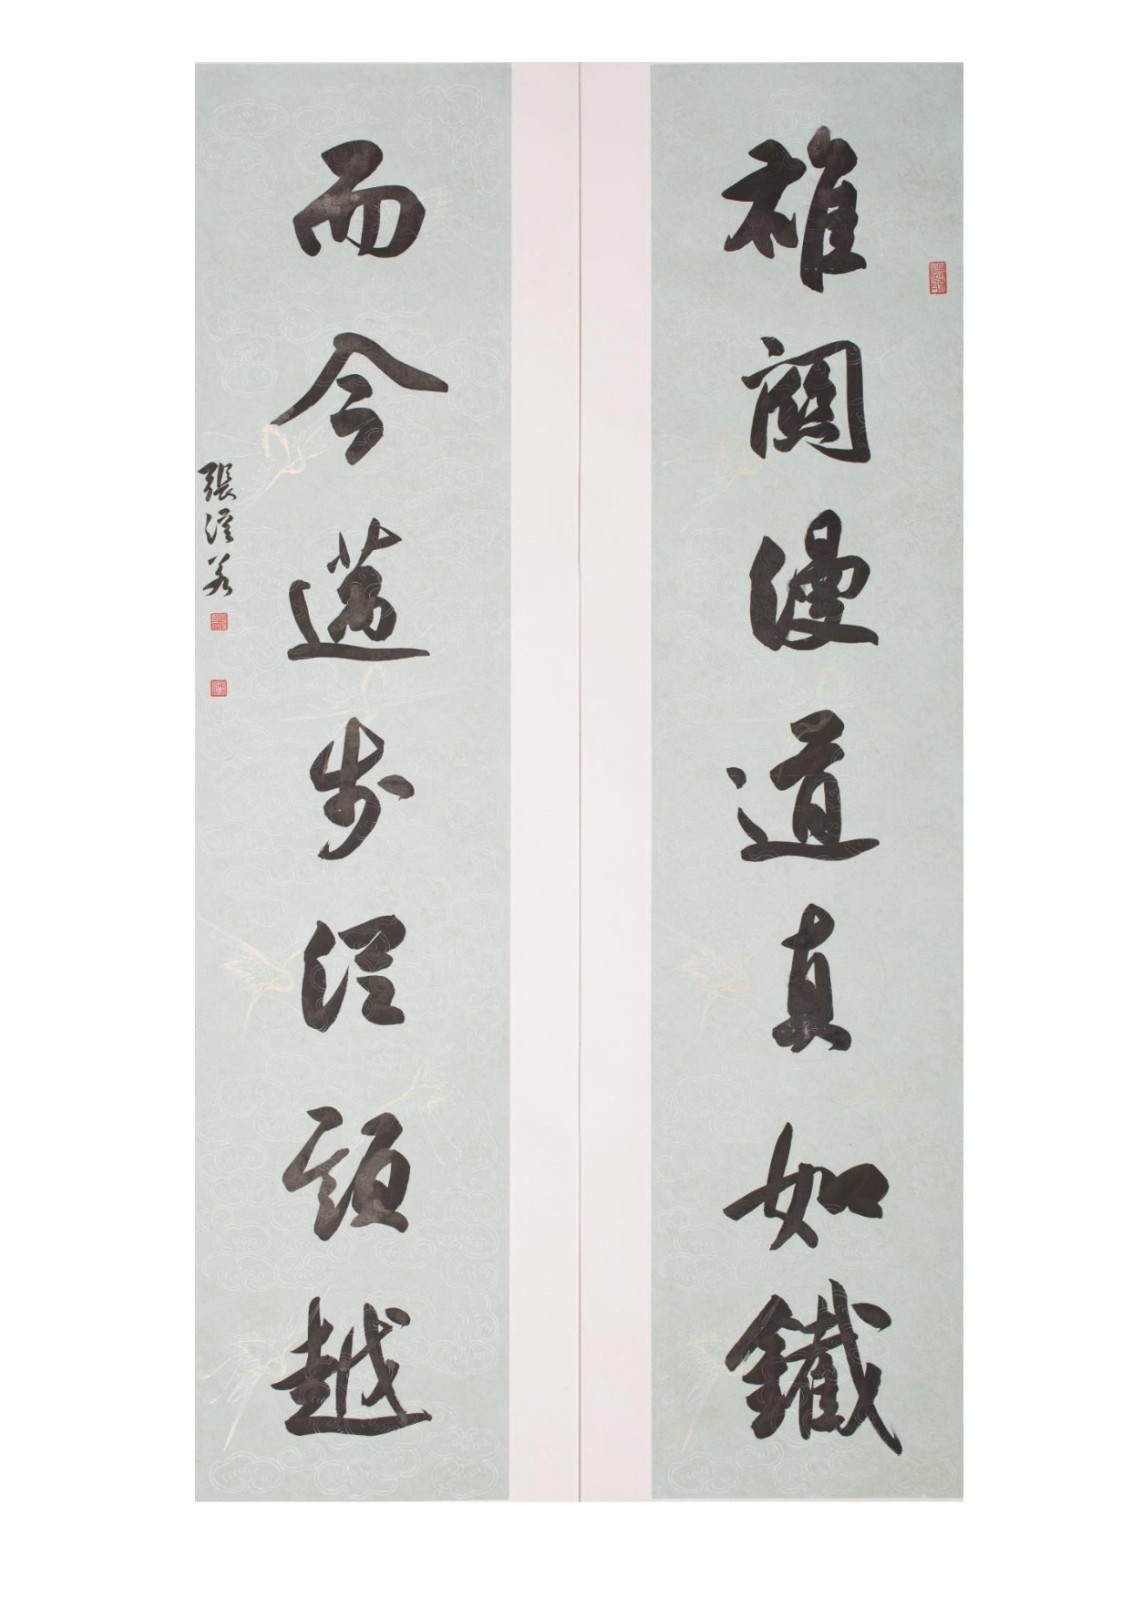 雄關漫道真如鐵
而今邁步從頭越
張若